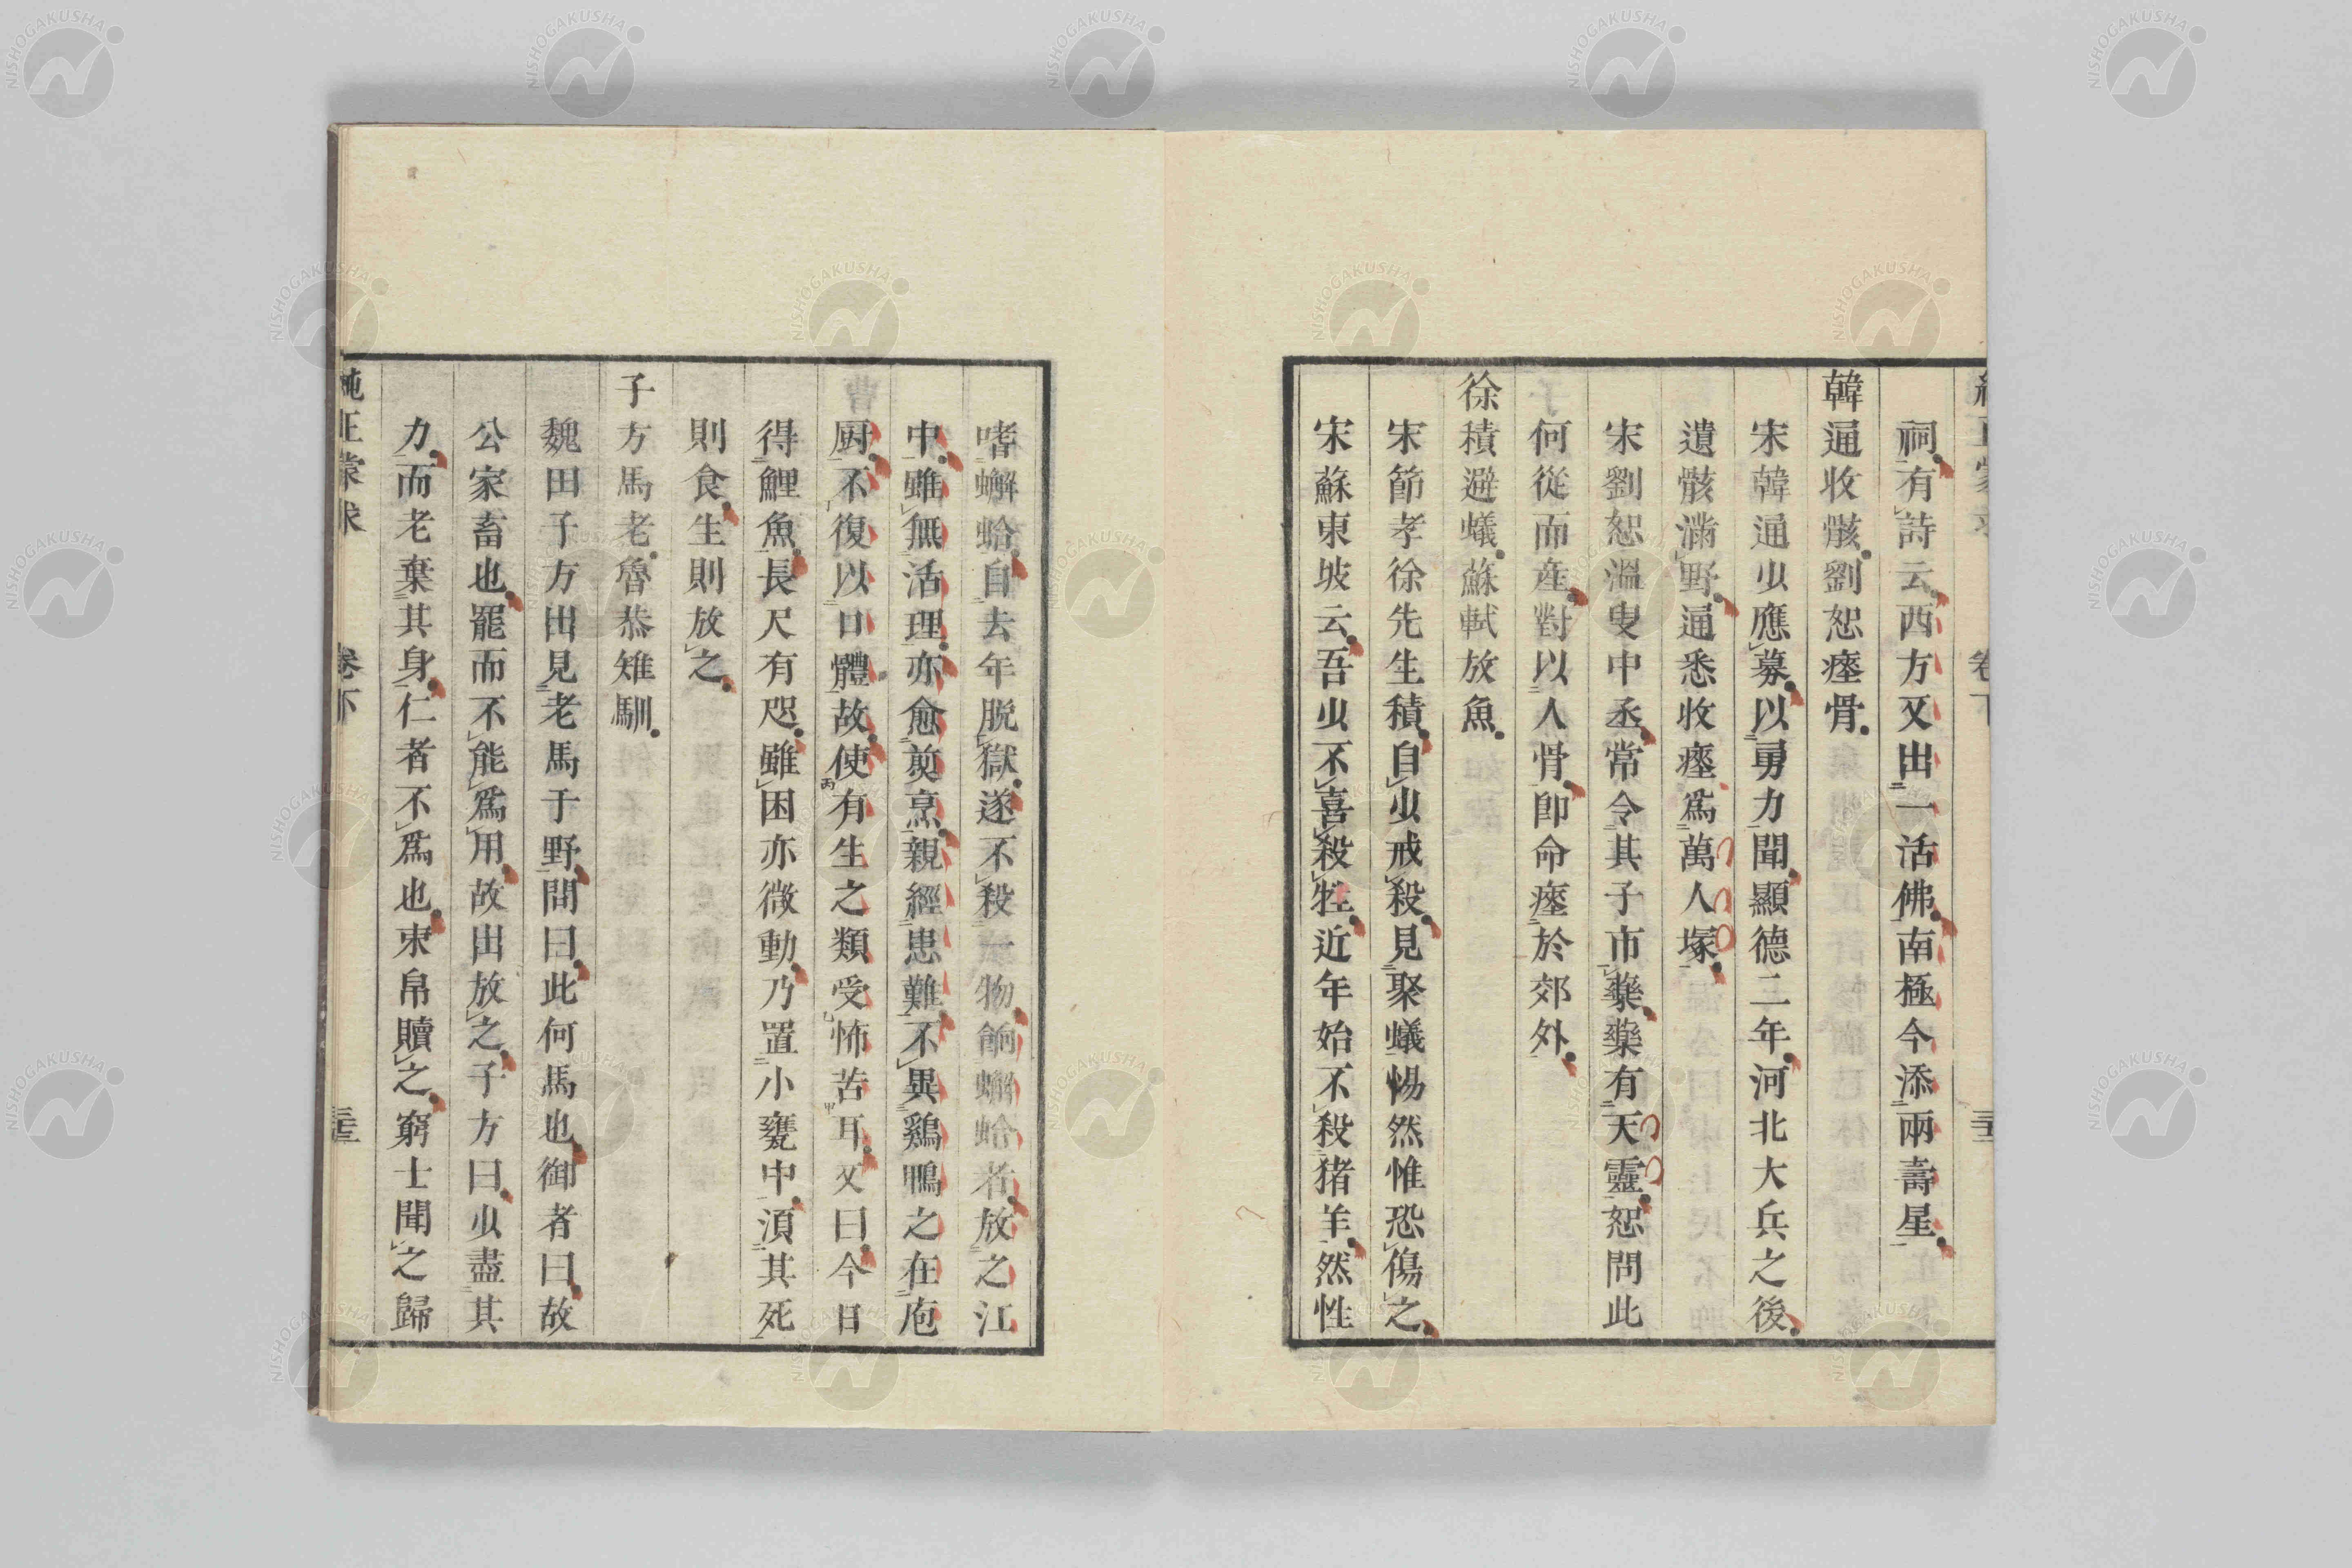 祠有詩云西方又出一活佛南極今添兩壽星
韓通收骸劉恕瘞骨
宋韓通少應募以勇力聞顯德二年河北大兵之後
遺骸滿野通悉收瘞爲萬人塚
宋劉恕溫叟中丞常令其子市藥藥有天靈恕問此
何從而産對以人骨卽命瘞於郊外
徐積避蟻蘇軾放魚
宋節孝徐先生積自少戒殺見聚蟻惕然惟恐傷之
宋蘇東坡云吾少不喜殺牲近年始不殺猪羊然性
嗜蠏蛤自去年脫獄遂不殺一物餉蠏蛤者放之江
中雖無活理亦愈煎烹親經患難不異鷄鴨之在庖
厨不復以口體故使有生之類受怖苦耳又曰今日
得鯉魚長尺有咫雖困亦微動乃置小甕中湏其死
則食生則放之
子方馬老魯恭雉馴
魏田子方出見老馬于野問曰此何馬也御者曰故
公家畜也罷而不能爲用故出放之子方曰少盡其
力而老棄其身仁者不爲也束帛贖之窮士聞之歸
純正蒙求 卷下
NISHOGAKUSHA